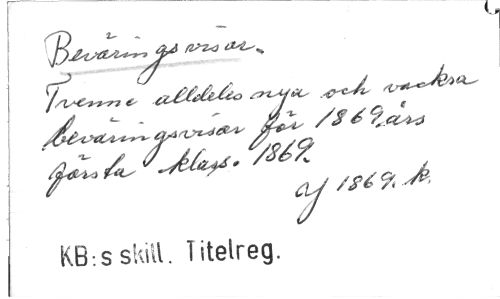 Beväringsvisor.
Tvenne alldeles nya och vackra
beväringsvisor för 1869 års
första klass. 1869.
Af 1869. k.
KB:s skill. Titelreg.